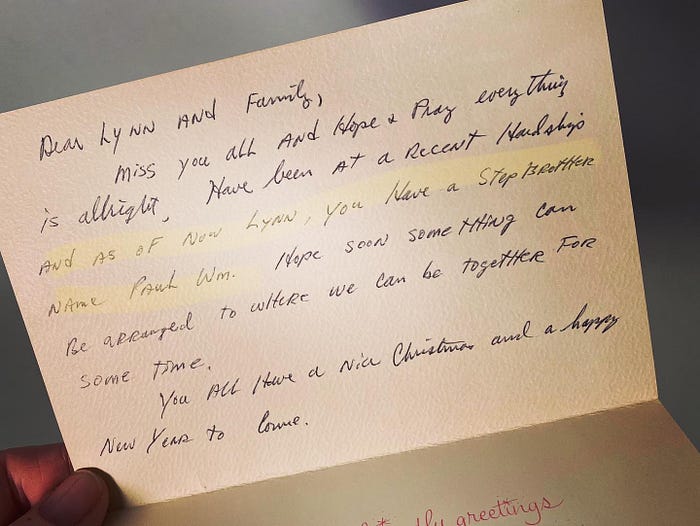 Dear Lynn and Family,
Miss you all and Hope & Pray everything
is allright, Have been at a recent Hardship
and as of Now Lynn, you Have a StepBrother
Name Paul Wm. Hope soon something can
Be arranged to where we can be together For
some time.
You All Have a Nice Christmas and a happy
New Year to Come.
greetings